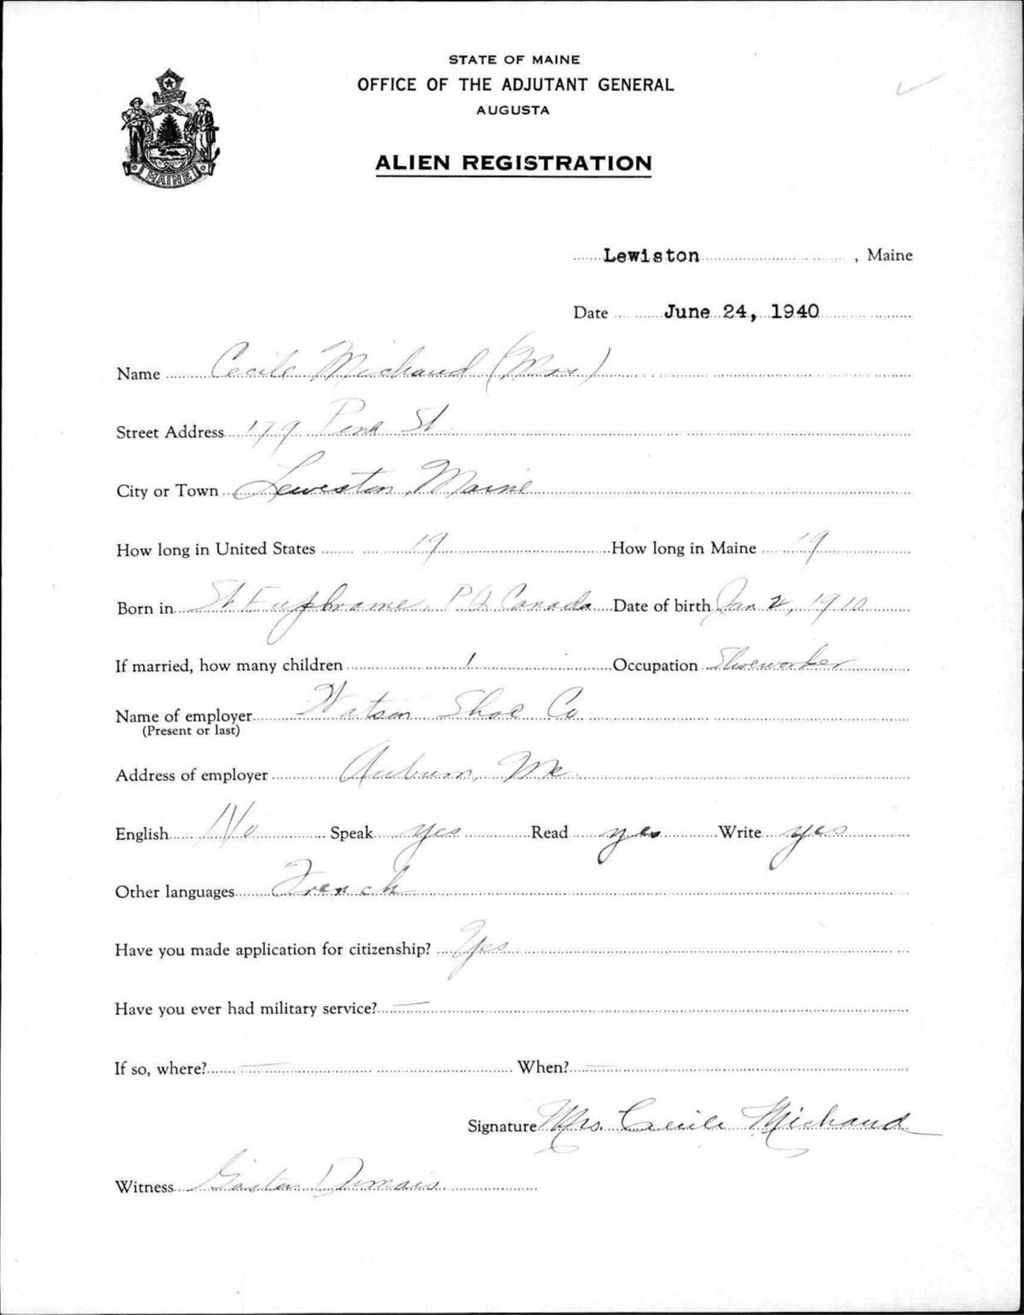 STATE OF MAINE
OFFICE OF THE ADJUTANT GENERAL
AUGUSTA
ALIEN REGISTRATION
MAINE
Lewiston, Maine
Date June 24, 1940
Name Cecile Michaud (Mrs)
Street Address 179 Pine St
City or Town Lewiston, Maine
How long in United States 19 How long in Maine 19
Born in St Euphrame, P.Q. Canada Date of birth Jan 2, 1910
If married, how many children 1 Occupation Shoeworker
Name of employer Watson Shoe Co
(Present or last)
Address of employer Auburn, Me
English No Speak yes Read yes Write yes
Other languages French
Have you made application for citizenship? Yes
Have you ever had military service? —
If so, where? — When? —
Signature Mrs. Cecile Michaud
Witness Gaston Dumais